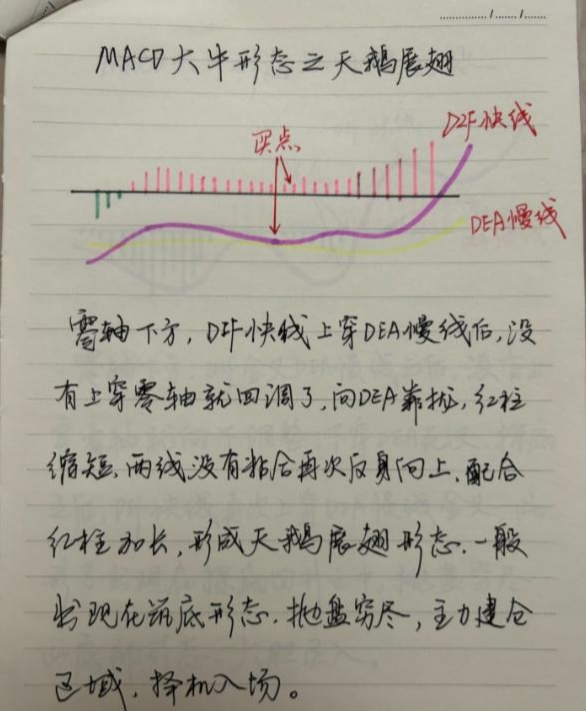 MACD大牛形态之天鹅展翅
买点
DIF快线
DEA慢线
零轴下方,DIF快线上穿DEA慢线后,没
有上穿零轴就回调了,向DEA靠拢,红柱
缩短、两线没有粘合再次反身向上、配合
红柱加长,形成天鹅展翅形态.一般
出现在筑底形态.抛盘穷尽,主力建仓
区域,择机入场。